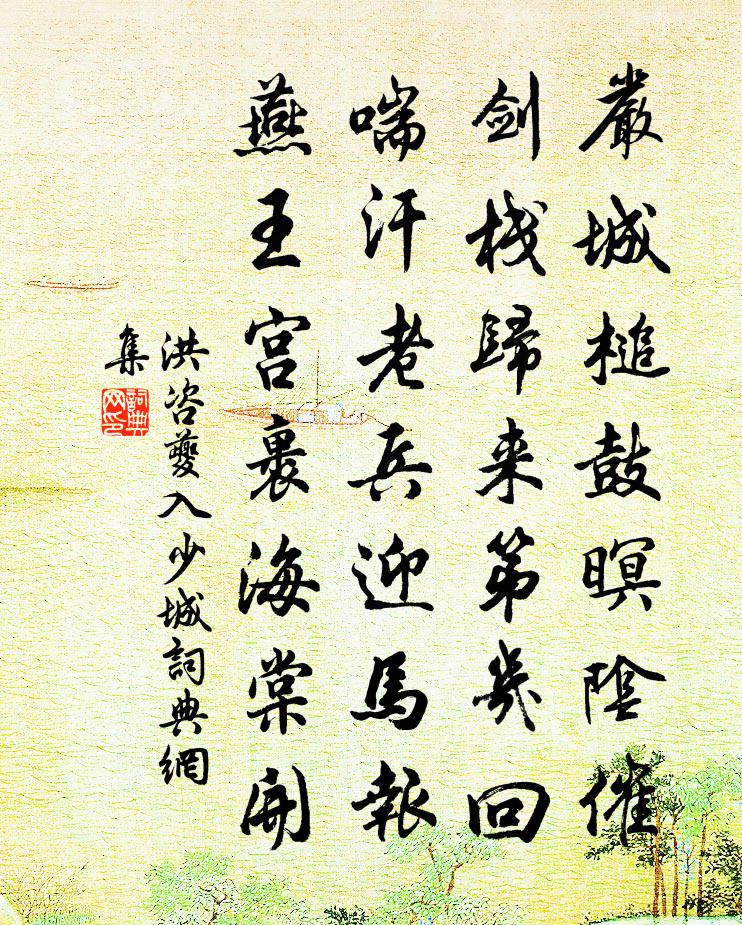 嚴城槌鼓暝陰催
劍棧歸来第幾回
喘汗老兵迎馬報
燕王宮裏海棠開
洪咨夔入少城詞典網
集
詞典
网印